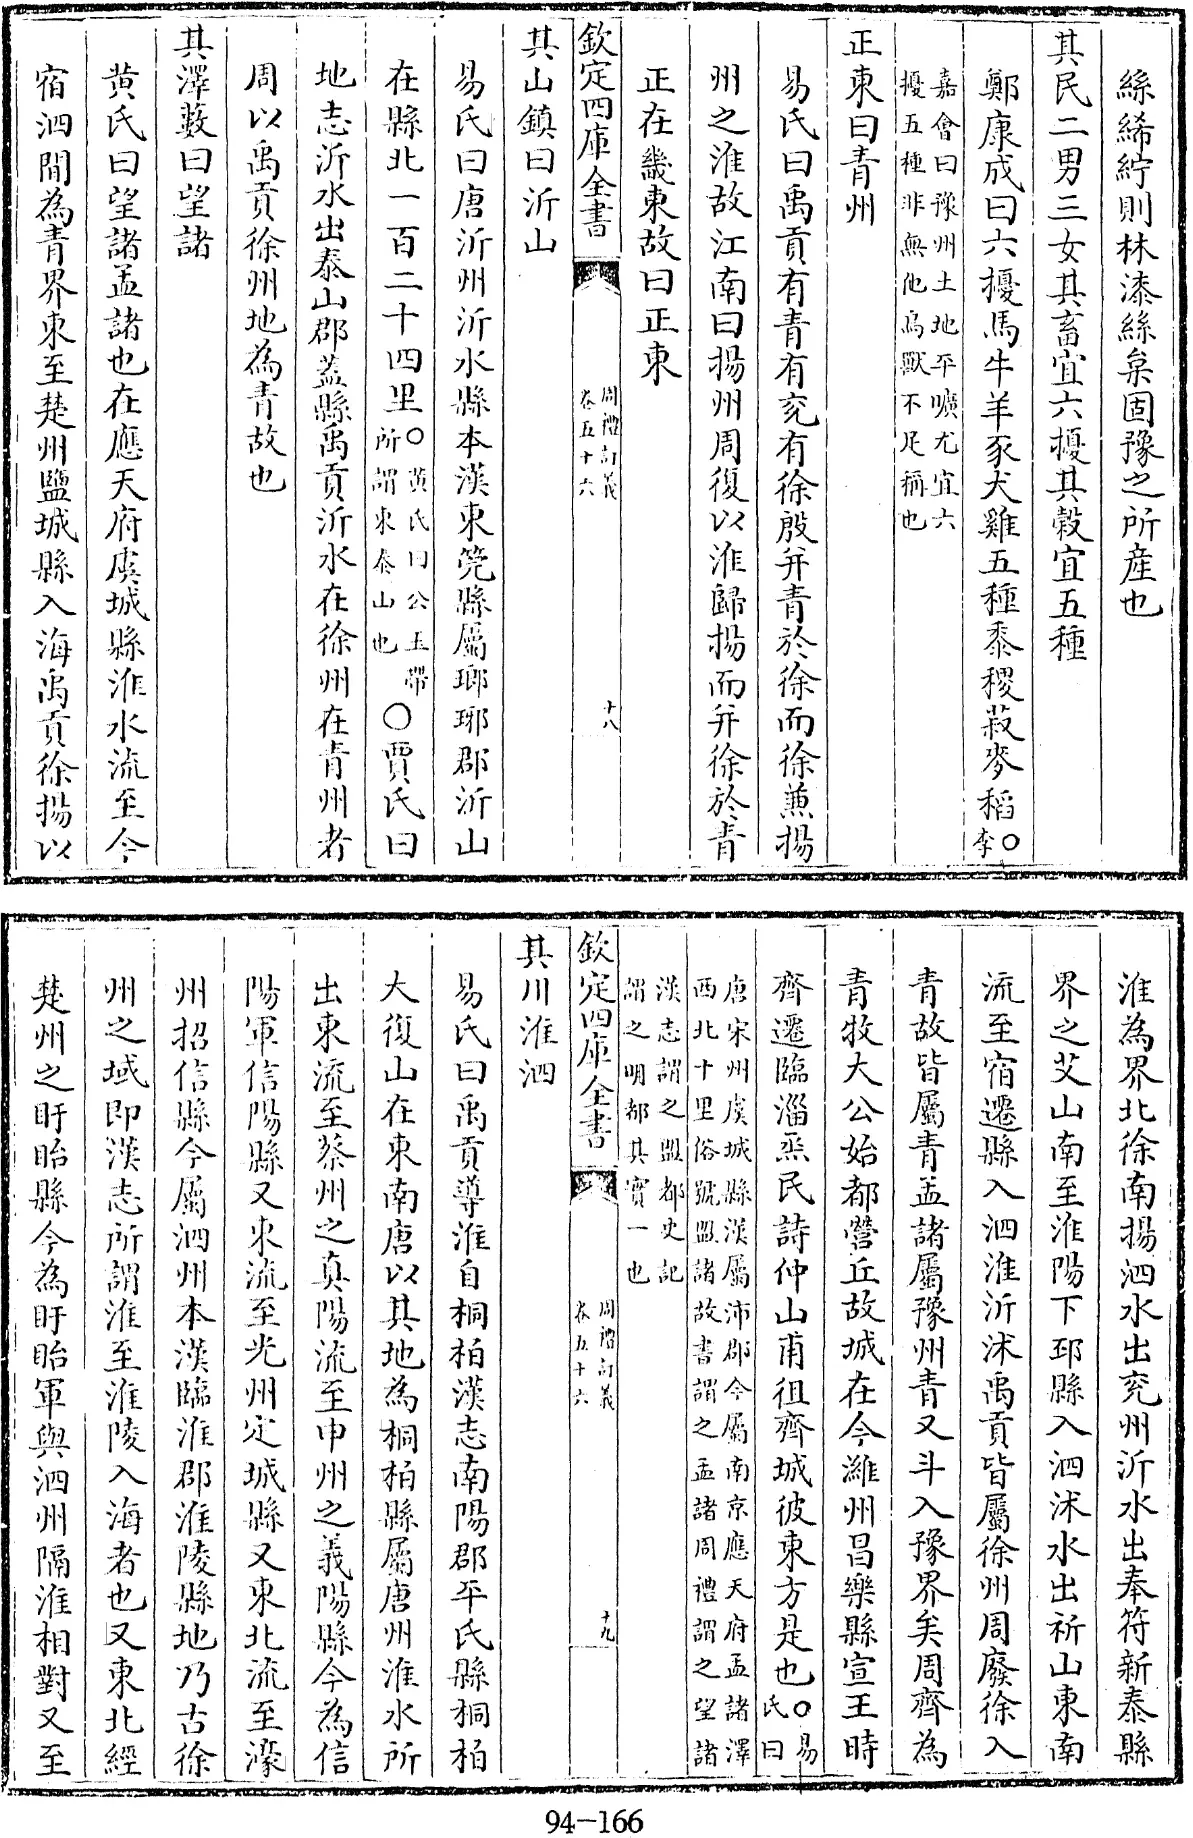 絲絺紵則林漆絲枲固豫之所産也
其民二男三女其畜宜六擾其穀宜五種
鄭康成曰六擾馬牛羊豕犬雞五種黍稷菽麥稻○李
嘉會曰豫州土地平曠尤宜六
擾五種非無他鳥獸不足稱也
正東曰青州
易氏曰禹貢有青有兖有徐殷并青於徐而徐兼揚
州之淮故江南曰揚州周復以淮歸揚而并徐於青
正在畿東故曰正東
欽定四庫全書
周禮訂義
卷五十六
十八
其山鎮曰沂山
易氏曰唐沂州沂水縣本漢東筦縣屬瑯琊郡沂山
在縣北一百二十四里○黄氏曰公玉帶所謂東泰山也○賈氏曰
地志沂水出泰山郡蓋縣禹貢沂水在徐州在青州者
周以禹貢徐州地為青故也
其澤藪曰望諸
黄氏曰望諸孟諸也在應天府虞城縣淮水流至今
宿泗間為青界東至楚州鹽城縣入海禹貢徐揚以
淮為界北徐南揚泗水出兖州沂水出奉符新泰縣
界之艾山南至淮陽下邳縣入泗沭水出祈山東南
流至宿遷縣入泗淮沂沭禹貢皆屬徐州周廢徐入
青故皆屬青孟諸屬豫州青又斗入豫界矣周齊為
青牧大公始都營丘故城在今濰州昌樂縣宣王時
齊遷臨淄烝民詩仲山甫徂齊城彼東方是也○易氏曰
唐宋州虞城縣漢屬沛郡今屬南京應天府孟諸澤
西北十里俗號盟諸故書謂之孟諸周禮謂之望諸
漢志謂之盟都史記
謂之明都其實一也
欽定四庫全書
周禮訂義
卷五十六
十九
其川淮泗
易氏曰禹貢導淮自桐柏漢志南陽郡平氏縣桐柏
大復山在東南唐以其地為桐柏縣屬唐州淮水所
出東流至蔡州之真陽流至申州之義陽縣今為信
陽軍信陽縣又東流至光州定城縣又東北流至濠
州招信縣今屬泗州本漢臨淮郡淮陵縣地乃古徐
州之域即漢志所謂淮至淮陵入海者也又東北經
楚州之盱眙縣今為盱眙軍與泗州隔淮相對又至
94-166